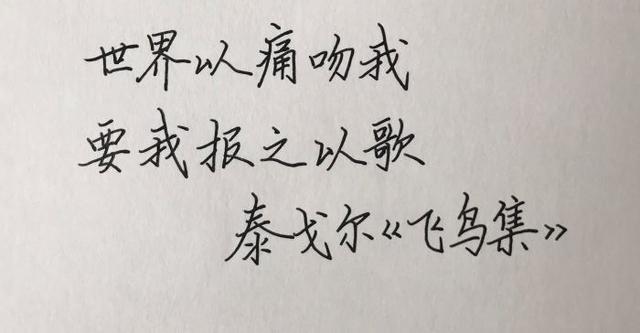 世界以痛吻我
要我报之以歌
泰戈尔《飞鸟集》